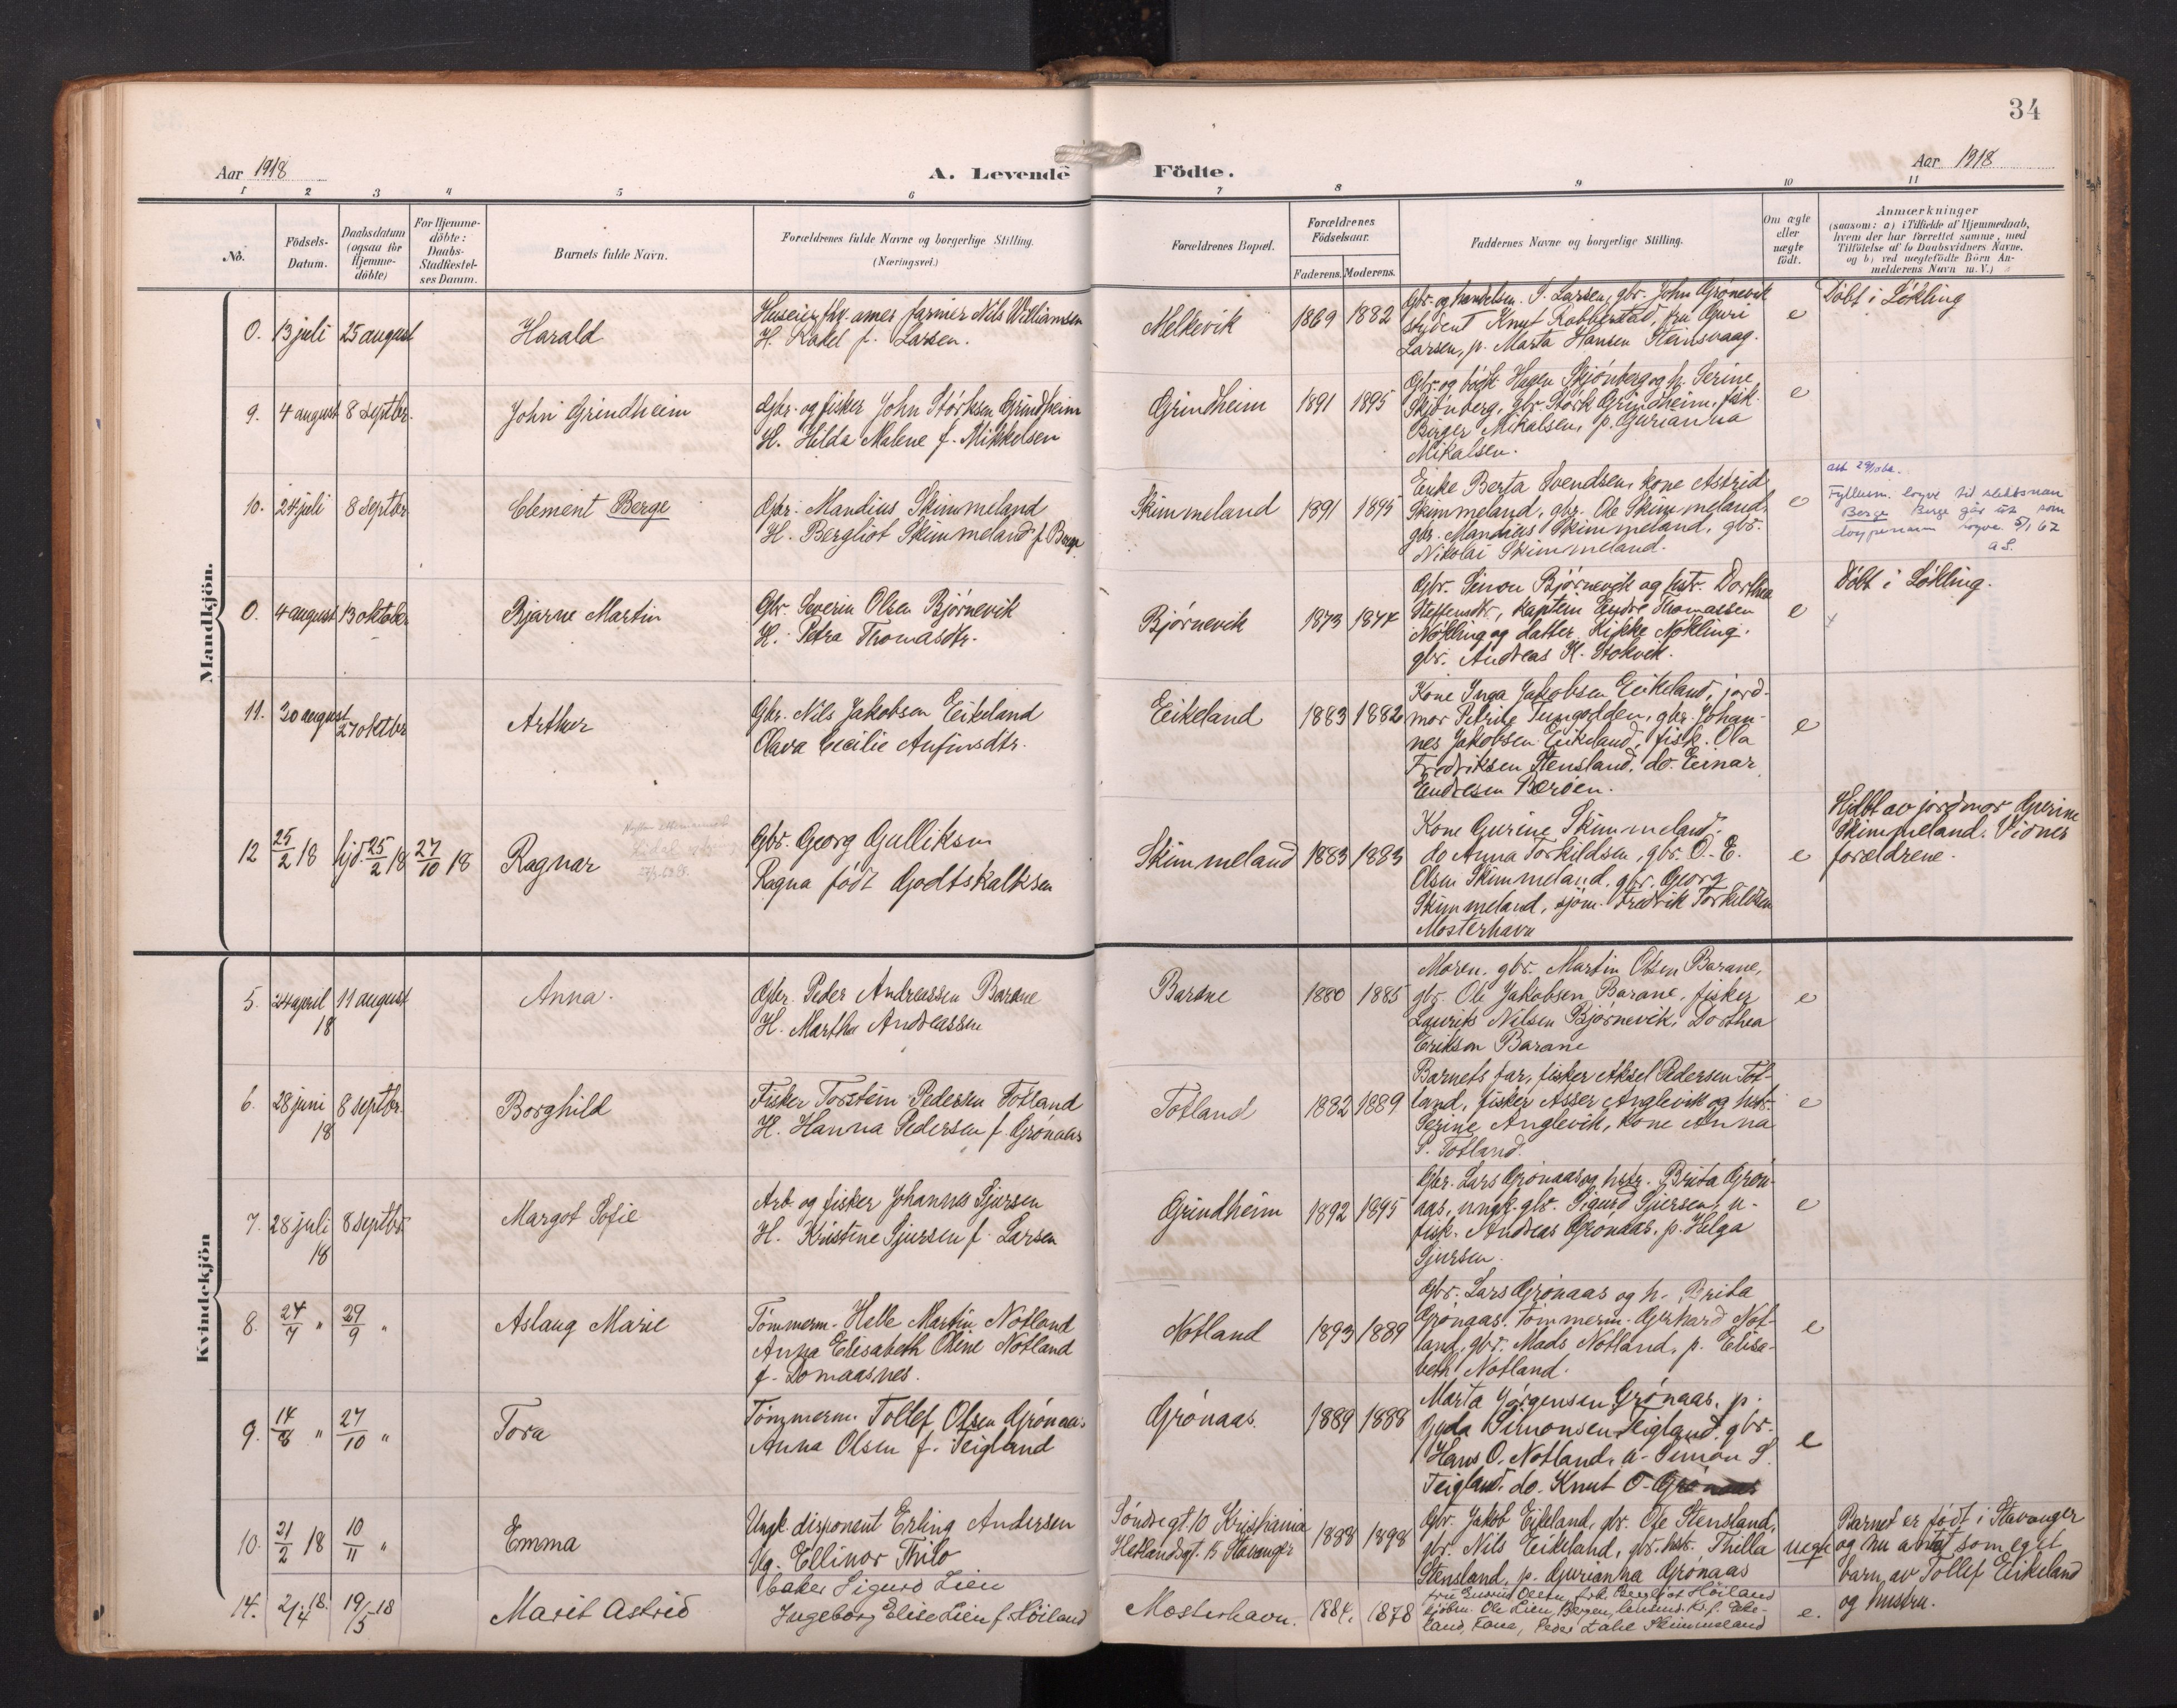 34
Aar 1918
A. Levende Födte.
Aar 1918
1 2 3 4 5 6 7 8 9 10 11
No.
Födsels-
Datum.
Daabsdatum
(ogsaa for
Hjemme-
döbte)
For Hjemme-
döbte:
Daabs-
Stadfæstel-
ses Datum.
Barnets fulde Navn.
Forældrenes fulde Navne og borgerlige Stilling.
(Næringsvei.)
Forældrenes Bopæl.
Forældrenes
Födselsaar.
Faderens. Moderens.
Faddernes Navne og borgerlige Stilling.
Om ægte
eller
uægte
födt.
Anmærkninger
(saasom: a) i Tilfælde af Hjemmedaab,
hvem der har forrettet samme, med
Tilföielse af to Daabsvidners Navne,
og b) ved uægtefödte Börn An-
melderens Navn m. V.)
Mandkjön.
0. 13 juli 25 august
Harald
Huseier, fhv. amer. farmer Nils Williamsen
H. Rakel f. Larsen.
Melkevik
1869 1882
Gbr. og handelsm. S. Larsen, gbr. John Grønevik
student Knut Robberstad, fru Guri
Larsen, p. Marta Hansen Steinsvaag.
e
Døbt i Løkling
9. 4 august 8 septbr.
John Grindheim
Gbr. og fisker John Størksen Grindheim
H. Hilda Malene f. Mikkelsen
Grindheim
1891 1895
Gbr. og bødk. Hagen Skjønberg og h. Serine
Skjønberg, gbr. Størk Grindheim, fisk.
Birger Mikalsen, p. Gurianna
Mikalsen.
e
10. 24 juli 8 septbr.
Clement Berge
Gbr. Mandius Skimmeland
H. Bergliot Skimmeland f. Berge
Skimmeland
1891 1895
Enke Berta Svendsen, kone Astrid
Skimmeland, gbr. Ole Skimmeland,
gbr. Mandius Skimmeland, gbr.
Nikolai Skimmeland.
e
Berge Berge går ut som
døypenamn 5/1 62
a S.
0. 4 august 13 oktober
Bjarne Martin
Gbr. Severin Olsen Bjørnevik
H. Petra Thomasdtr.
Bjørnevik
1873 1874
Gbr. Simon Bjørnevik og hstr. Dorthea
Steffensdtr., kaptein Endre Thomassen
Nøkling og datter Kikke Nøkling.
gbr. Andreas H. Stokvik.
e
Døbt i Løkling.
11. 30 august 27 oktbr
Arthur
Gbr. Nils Jakobsen Eikeland
Olava Cecilie Anfinsdtr.
Eikeland
1883 1882
Kone Inga Jakobsen Eikeland, jord-
mor Petrine Tungodden, gbr. Johan-
nes Jakobsen Eikeland, fisk. Ola
Fredriksen Stensland, do. Einar
Endresen Børøen.
e
12 25/2 18 hjd. 25/2 18 27/10 18
Ragnar
Gbr. Georg Gulliksen
Ragna født Godtskalksen
Skimmeland
1883 1883
Kone Gurine Skimmeland.
do Anna Torkildsen, gbr. O. E.
Olsen Skimmeland, gbr. Georg
Skimmeland, sjøm. Fredrik Torkildsen
Mosterhavn
e
Hjdbt av jordmor Gurine
Skimmeland. Vidner
forældrene.
Kvindekjön
5. 24 april 18 11 august
Anna.
Gbr. Peder Andreassen Barane
H. Martha Andreassen
Barane
1880 1885
Moren, gbr. Martin Olsen Barane,
gbr. Ole Jakobsen Barane, fisker
Laurits Nilsen Bjørnevik, Dorthea
Eriksen Barane
e
6. 28 juni 18 8 septbr.
Borghild
Fisker Torstein Pedersen Totland
H. Hanna Pedersen f. Grønaas
Totland
1882 1889
Barnets far, fisker Aksel Pedersen Tot-
land, fisker Asser Anglevik og hstr.
Serine Anglevik, kone Anna
P. Totland.
e
7. 28 juli 18 8 septbr.
Margot Sofie
Arb. og fisker Johannes Sjursen
H. Kristine Sjursen f. Larsen
Grindheim
1892 1895
Gbr. Lars Grønaas og hstr. Brita Grøn-
aas, ungk. gbr. Sigurd Sjursen, u-
fisk. Andreas Grønaas, p. Helga
Sjursen.
e
8. 24/7 " 29/9 "
Aslaug Marie
Tømmerm. Helle Martin Notland
Anna Elisabeth Oline Notland
f. Lomaasnes.
Notland
1893 1889
Gbr. Lars Grønaas og h. Brita
Grønaas. Tømmerm. Gerhard Not-
land, gbr. Mads Notland, p. Elisa-
beth Notland.
e
9. 14/8 " 27/10 "
Tora
Tømmerm. Tollef Olsen Grønaas
Anna Olsen f. Teigland
Grønaas.
1889 1888
Marta Jørgensen Grønaas, p.
Gyda Simonsen Teigland, gbr.
Hans O. Notland, u. Simon S.
Teigland. do. Knut O. Grønaas
e
10. 21/2 18 10/11 "
Emma
Ungk. disponent Erling Andersen
Ug. Ellinor Thilo
Søndregt. 10 Kristiania
Hetlandsgt. 15 Stavanger
1888 1898
Gbr. Jakob Eikeland, gbr. Ole Stensland,
gbr. Nils Eikeland, gbr. hstr. Thilla
Stensland, p. Gurianna Grønaas
uegte
Barnet er født i Stavanger
og nu antat som eget
barn av Tollef Eikeland
og hustru.
14. 2/4 18. 19/5 18
Marit Astrid
baker Sigurd Lien
Ingeborg Elise Lien f. Høiland
Mosterhavn.
1884. 1878
Olsen, frk. Bergliot Høiland
Ole Lien, Bergen, lensm. K. J. Eike-
land, kone, Peder Skimmeland
e.